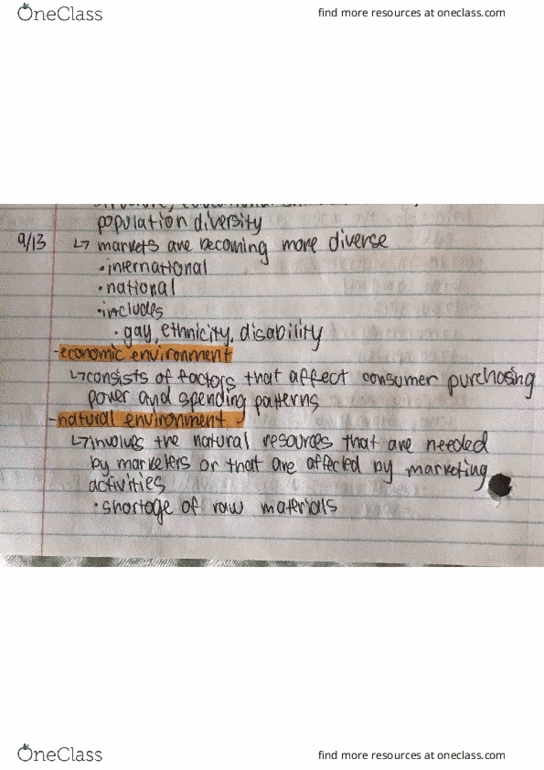 OneClass
find more resources at oneclass.com
population diversity
9/13 ↳ markets are becoming more diverse
• international
• national
• includes
• gay, ethnicity, disability
- economic environment
↳ consists of factors that affect consumer purchasing
power and spending patterns
- natural environment -
↳ involves the natural resources that are needed
by marketers or that are affected by marketing
activities
• shortage of raw materials
OneClass
find more resources at oneclass.com